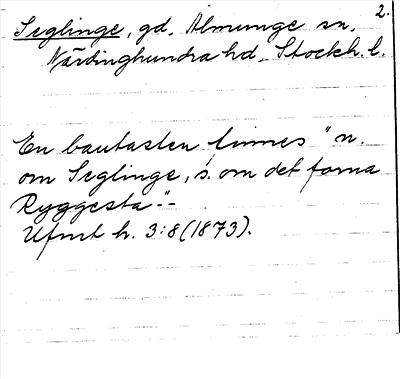 2.
Seglinge, gd, Almunge sn.
Närdinghundra hd, Stockh. l.
En bautasten finnes "n.
om Seglinge, s. om det forna
Ryggesta."-
Ufmt h. 3:8 (1873).